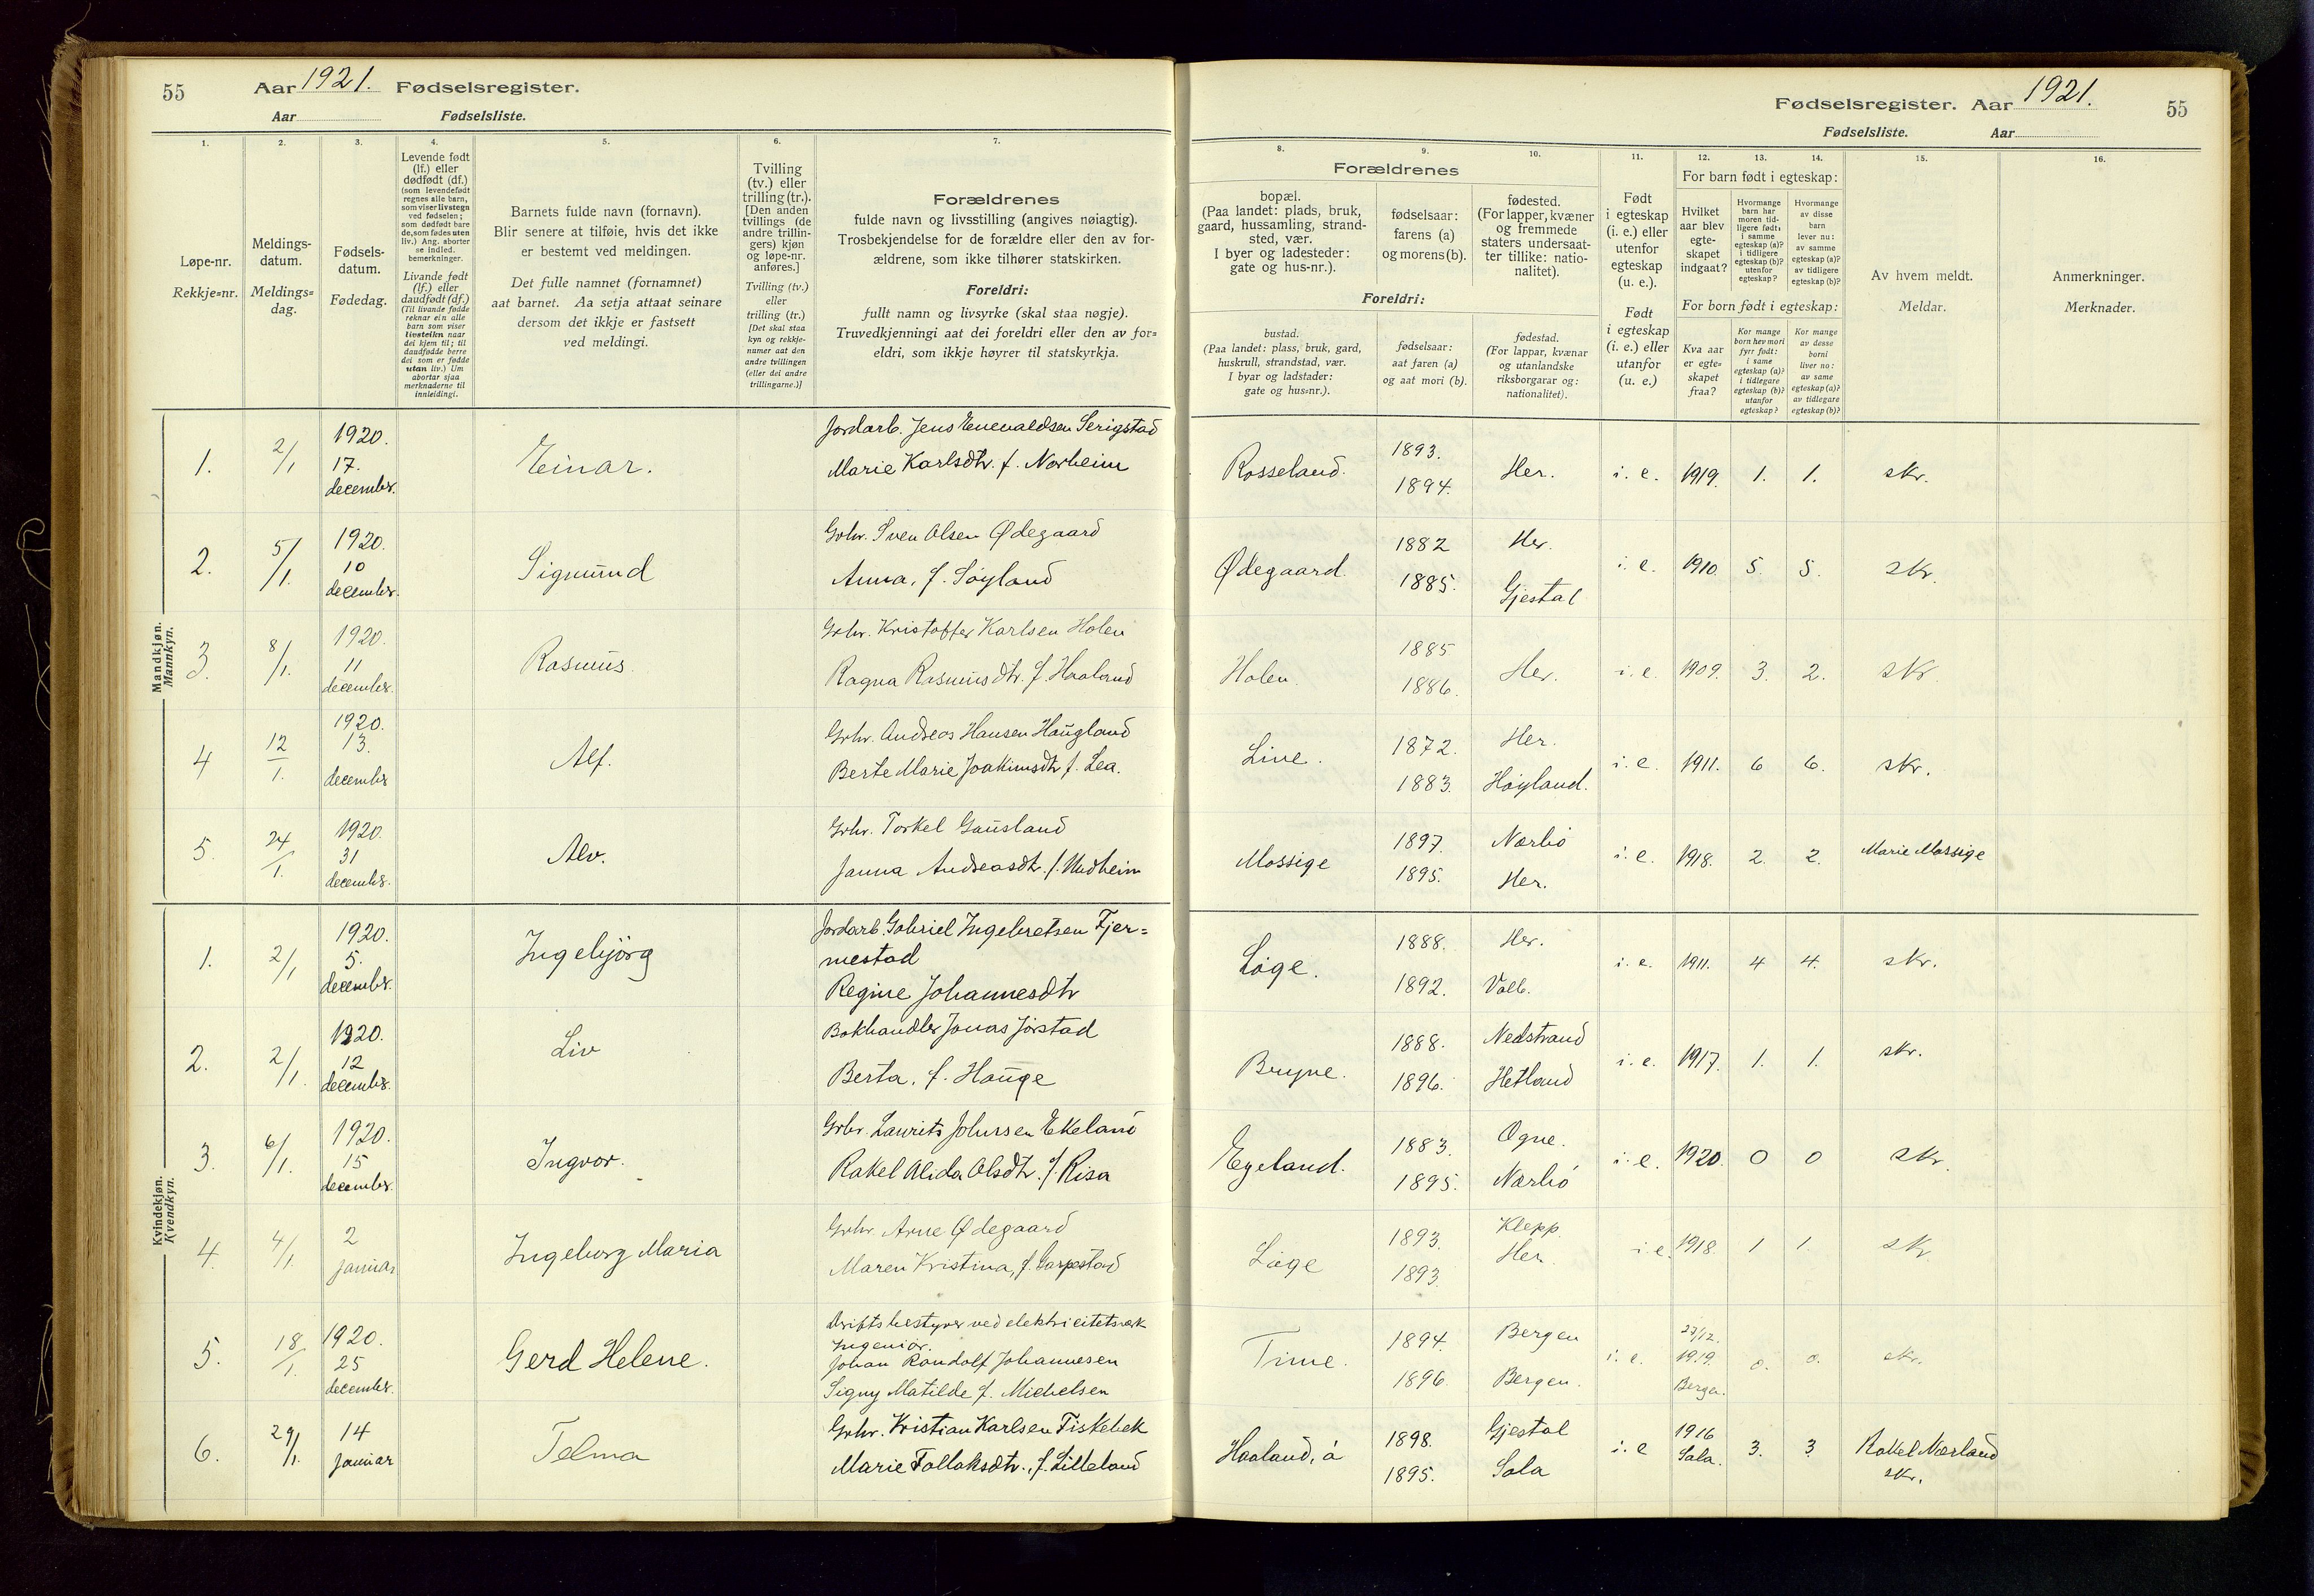 55 Aar 1921. Fødselsregister.
Aar Fødselsliste.
1. 2. 3. 4. 5. 6. 7.
Løpe-nr.
Rekkje=nr.
Meldings-
datum.
Meldings=
dag.
Fødsels-
datum.
Fødedag.
Levende født
(lf.) eller
dødfødt (df.)
(som levendefødt
regnes alle barn,
som viser livstegn
ved fødselen;
som dødfødt bare
de, som fødes uten
liv.) Ang. aborter
se indled.
bemerkninger.
Livande født
(lf.) eller
daudfødt (df.)
(Til livande fødde
reknar ein alle
barn som viser
livsteikn naar
dei kjem til; til
daudfødde berre
dei som er fødde
utan liv.) Um
abortar sjaa
merknaderne til
innleidingi.
Barnets fulde navn (fornavn).
Blir senere at tilføie, hvis det ikke
er bestemt ved meldingen.
Det fulle namnet (fornamnet)
aat barnet. Aa setja attaat seinare
dersom det ikkje er fastsett
ved meldingi.
Tvilling
(tv.) eller
trilling (tr.).
[Den anden
tvillings (de
andre trillin-
gers) kjøn
og løpe-nr.
anføres.]
Tvilling (tv.)
eller
trilling (tr.)
[Det skal staa
kyn og rekkje-
numer aat den
andre tvillingen
(eller dei andre
trillingarne.)]
Forældrenes
fulde navn og livsstilling (angives nøiagtig).
Trosbekjendelse for de forældre eller den av for-
ældrene, som ikke tilhører statskirken.
Foreldri:
fullt namn og livsyrke (skal staa nøgje).
Truvedkjenningi aat dei foreldri eller den av for=
eldri, som ikkje høyrer til statskyrkja.
Mandkjøn.
Mannkyn.
1. 2/1 1920. 17. decembr. Einar. Jordarb. Jens Enevaldsen Serigstad
Marie Karlsdtr. f. Norheim
2. 5/1. 1920. 10 decembr. Sigmund Grbr. Sven Olsen Ødegaard
Anna, f. Søyland
3. 8/1. 1920. 11 decembr. Rasmus. Grbr. Kristoffer Karlsen Holen
Ragna Rasmusdtr. f. Haaland
4 12/1. 1920. 13. decembr Alf. Grbr. Andreas Hansen Haugland
Berte Marie Joakimsdtr f. Lea.
5. 24/1. 1920. 31 decembr. Alv. Grbr. Torkel Gausland
Janna Andreasdtr. f. Undheim
Kvindekjøn.
Kvendkyn.
1. 2/1 1920. 5. decembr. Ingebjörg Jordarb. Gabriel Ingebretsen Fjer=
mestad
Regine Johannesdtr
2. 2/1. 1920. 12 decembr. Liv Bokhandler Jonas Jørstad
Berta, f. Hauge
3. 6/1. 1920. 15 decembr. Ingvor. Grbr. Laurits Johnsen Ekeland
Rakel Alida Olsdtr. f. Risa
4. 4/1. 2 januar Ingeborg Maria Grbr. Arne Ødegaard
Maren Kristina, f. Garpestad
5. 18/1. 1920. 25 decembr. Gerd Helene. Driftsbestyrer ved elektricitetsverk
Ingeniör.
Johan Randolf Johannesen
Signy Matilde f. Michelsen
6. 29/1. 14 Januar Telma Grbr. Kristian Karlsen Fiskebek
Marie Tollaksdtr., f. Lilleland
Fødselsregister. Aar 1921. 55
Fødselsliste. Aar
8. 9. 10. 11. 12. 13. 14. 15. 16.
Forældrenes
bopæl.
(Paa landet: plads, bruk,
gaard, hussamling, strand-
sted, vær.
I byer og ladesteder:
gate og hus-nr.).
fødselsaar:
farens (a)
og morens (b).
fødested.
(For lapper, kvæner
og fremmede
staters undersaat-
ter tillike: natio-
nalitet).
Foreldri:
bustad.
(Paa landet: plass, bruk, gard,
huskrull, strandstad, vær.
I byar og ladstader:
gate og hus=nr.).
fødselsaar:
aat faren (a)
og aat mori (b).
fødestad.
(For lappar, kvænar
og utanlandske
riksborgarar og:
nationalitet).
Født
i egteskap
(i. e.) eller
utenfor
egteskap
(u. e.).
Født
i egteskap
(i. e.) eller
utanfor
(u. e.)
For barn født i egteskap:
Hvilket
aar blev
egte-
skapet
indgaat?
Hvormange
barn har
moren tid-
ligere født:
i samme
egteskap (a)?
i tidligere
egteskap (b)?
utenfor
egteskap?
Hvormange
av disse
barn
lever nu:
av samme
egteskap (a)?
av tidligere
egteskap (b)?
For born født i egteskap:
Kva aar
er egte-
skapet
fraa?
Kor mange
born hev mori
fyrr født:
i same
egteskap (a)?
i tidlegare
egteskap (b)?
utanfor
egteskap?
Kor mange
av desse
borni
liver no:
av same
egteskap (a)?
av tidlegare
egteskap (b)?
Av hvem meldt.
Meldar.
Anmerkninger.
Merknader.
Rosseland. 1893. 1894. Her. i. e. 1919. 1. 1. skr.
Ødegaard. 1882 1885. Her. Gjestal i. e. 1910. 5. 5. skr.
Holen. 1885 1886. Her. i. e. 1909. 3. 2. skr.
Line. 1872. 1883. Her. Høyland. i. e. 1911. 6 6. skr.
Mossige 1897. 1895. Nærbö Her. i. e. 1918. 2. 2. Marie Mossige
Löge. 1888. 1892. Her. Valb. i. e. 1911. 4 4. skr.
Bryne. 1888. 1896. Nedstrand Hetland i. e. 1917. 1. 1. skr.
Egeland. 1883. 1895. Ogne. Nærbö i. e. 1920. 0 0 skr.
Löge 1893. 1893. Klepp. Her i. e. 1918. 1 1. skr
Time. 1894. 1896. Bergen Bergen. i. e. 27/12. 1919. Bergen. 0. 0. skr.
Haaland, à 1898. 1895. Gjestal Sola i. e 1916 Sola. 3. 3 Rakel Nærland
skr.